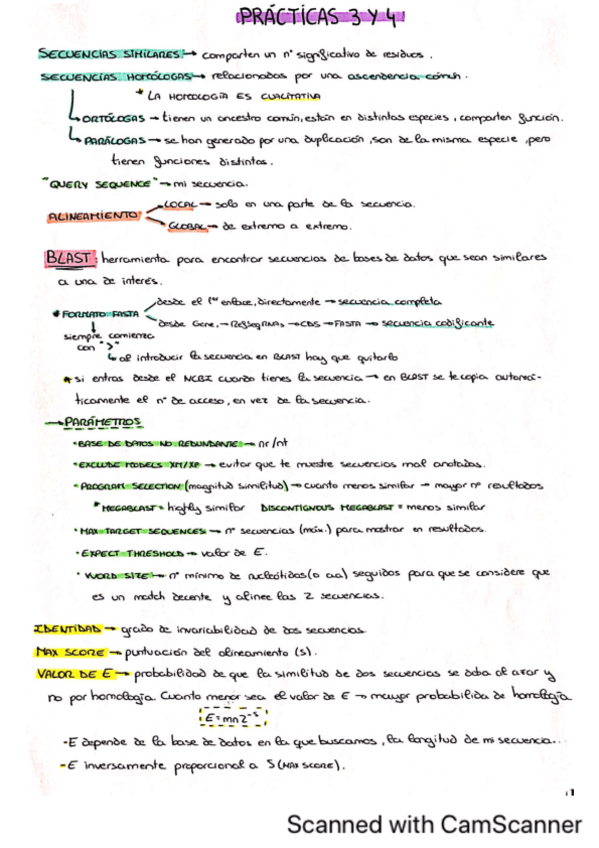 PRÁCTICAS 3 Y 4
SECUENCIAS SIMILARES → comparten un nº significativo de residuos.
SECUENCIAS HOMÓLOGAS → relacionadas por una ascendencia común.
* LA HOMOLOGÍA ES CUALITATIVA
ORTÓLOGAS → tienen un ancestro común, están en distintas especies, comparten función.
PARÁLOGAS → se han generado por una duplicación, son de la misma especie, pero
tienen funciones distintas.
"QUERY SEQUENCE" → mi secuencia.
ALINEAMIENTO
LOCAL → solo en una parte de la secuencia.
GLOBAL → de extremo a extremo.
BLAST: herramienta para encontrar secuencias de bases de datos que sean similares
a una de interés.
* FORMATO FASTA
desde el 1er enlace, directamente → secuencia completa
desde Gene → RefSeqRNAs → CDS → FASTA → secuencia codificante
siempre comienza
con ">"
al introducir la secuencia en BLAST hay que quitarlo
* si entras desde el NCBI cuando tienes la secuencia → en BLAST se te copia automá-
ticamente el nº de acceso, en vez de la secuencia.
→ PARÁMETROS
· BASE DE DATOS NO REDUNDANTE → nr/nt
· EXCLUDE MODELS XM/XP → evitar que te muestre secuencias mal anotadas.
· PROGRAM SELECTION (magnitud similitud) → cuanto menos similar → mayor nº resultados
* MEGABLAST = highly similar DISCONTIGNOUS MEGABLAST = menos similar
· MAX TARGET SEQUENCES → nº secuencias (máx.) para mostrar en resultados.
· EXPECT THRESHOLD → valor de E.
· WORD SIZE → nº mínimo de nucleótidos (o aa) seguidos para que se considere que
es un match decente y alinee las 2 secuencias.
IDENTIDAD → grado de invariabilidad de dos secuencias.
MAX SCORE → puntuación del alineamiento (s).
VALOR DE E → probabilidad de que la similitud de dos secuencias se deba al azar y
no por homología. Cuanto menor sea el valor de E → mayor probabilida de homología
E = mn2⁻ˢ
- E depende de la base de datos en la que buscamos, la longitud de mi secuencia...
- E inversamente proporcional a S (MAX SCORE).
1
Scanned with CamScanner